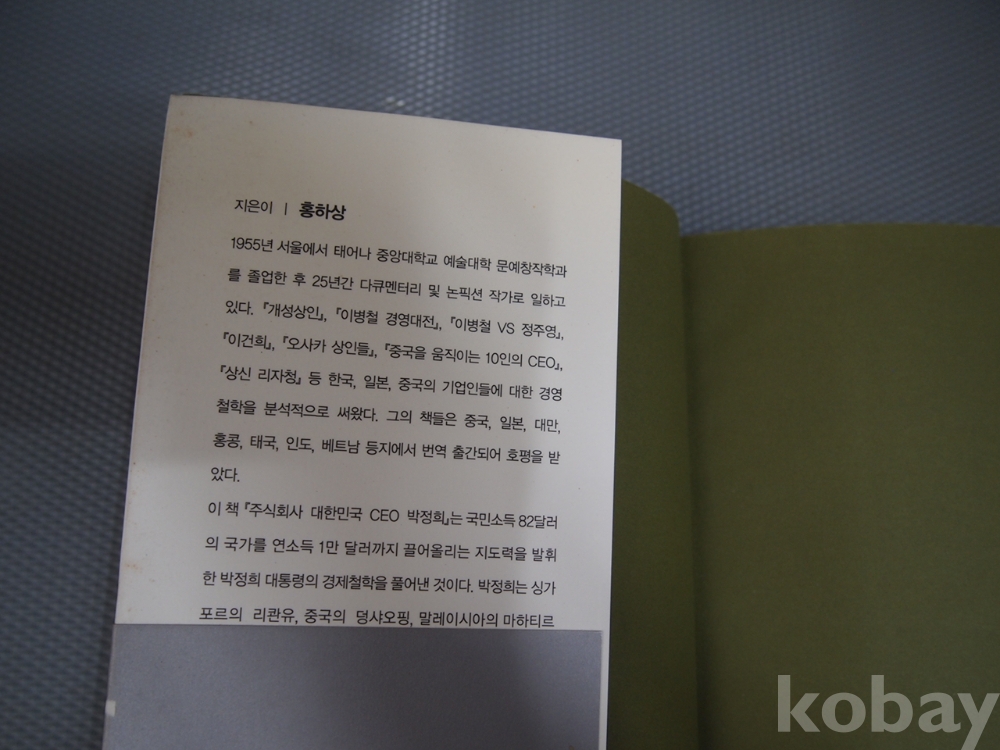 지은이 | 홍하상
1955년 서울에서 태어나 중앙대학교 예술대학 문예창작학과
를 졸업한 후 25년간 다큐멘터리 및 논픽션 작가로 일하고
있다. 『개성상인』, 『이병철 경영대전』, 『이병철 VS 정주영』,
『이건희』, 『오사카 상인들』, 『중국을 움직이는 10인의 CEO』,
『상신 리자청』 등 한국, 일본, 중국의 기업인들에 대한 경영
철학을 분석적으로 써왔다. 그의 책들은 중국, 일본, 대만,
홍콩, 태국, 인도, 베트남 등지에서 번역 출간되어 호평을 받
았다.
이 책 『주식회사 대한민국 CEO 박정희』는 국민소득 82달러
의 국가를 연소득 1만 달러까지 끌어올리는 지도력을 발휘
한 박정희 대통령의 경제철학을 풀어낸 것이다. 박정희는 싱가
포르의 리콴유, 중국의 덩샤오핑, 말레이시아의 마하티르
kobay